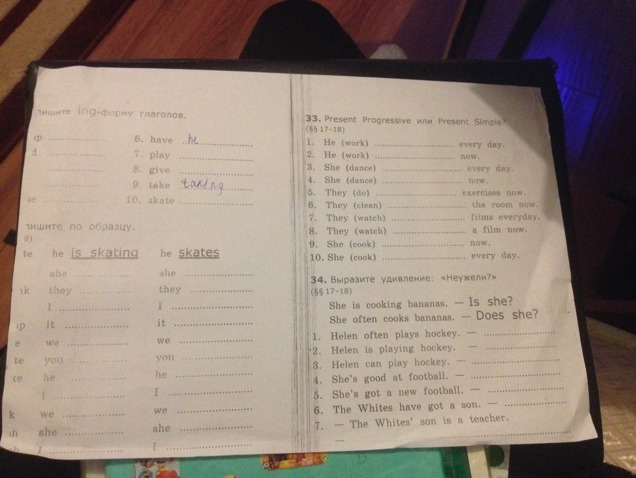 пишите ing-форму глаголов.
6. have he
7. play
8. give
9. take taking
10. skate
пишите по образцу.
8)
te he is skating he skates
she she
they they
I I
it it
we we
you you
he he
I I
we we
she she
I I
33. Present Progressive или Present Simple?
(§§ 17-18)
1. He (work) every day.
2. He (work) now.
3. She (dance) every day.
4. She (dance) now.
5. They (do) exercises now.
6. They (clean) the room now.
7. They (watch) films everyday.
8. They (watch) a film now.
9. She (cook) now.
10. She (cook) every day.
34. Выразите удивление: «Неужели?»
(§§ 17-18)
She is cooking bananas. — Is she?
She often cooks bananas. — Does she?
1. Helen often plays hockey. —
2. Helen is playing hockey. —
3. Helen can play hockey. —
4. She's good at football. —
5. She's got a new football. —
6. The Whites have got a son. —
7. — The Whites' son is a teacher.
—